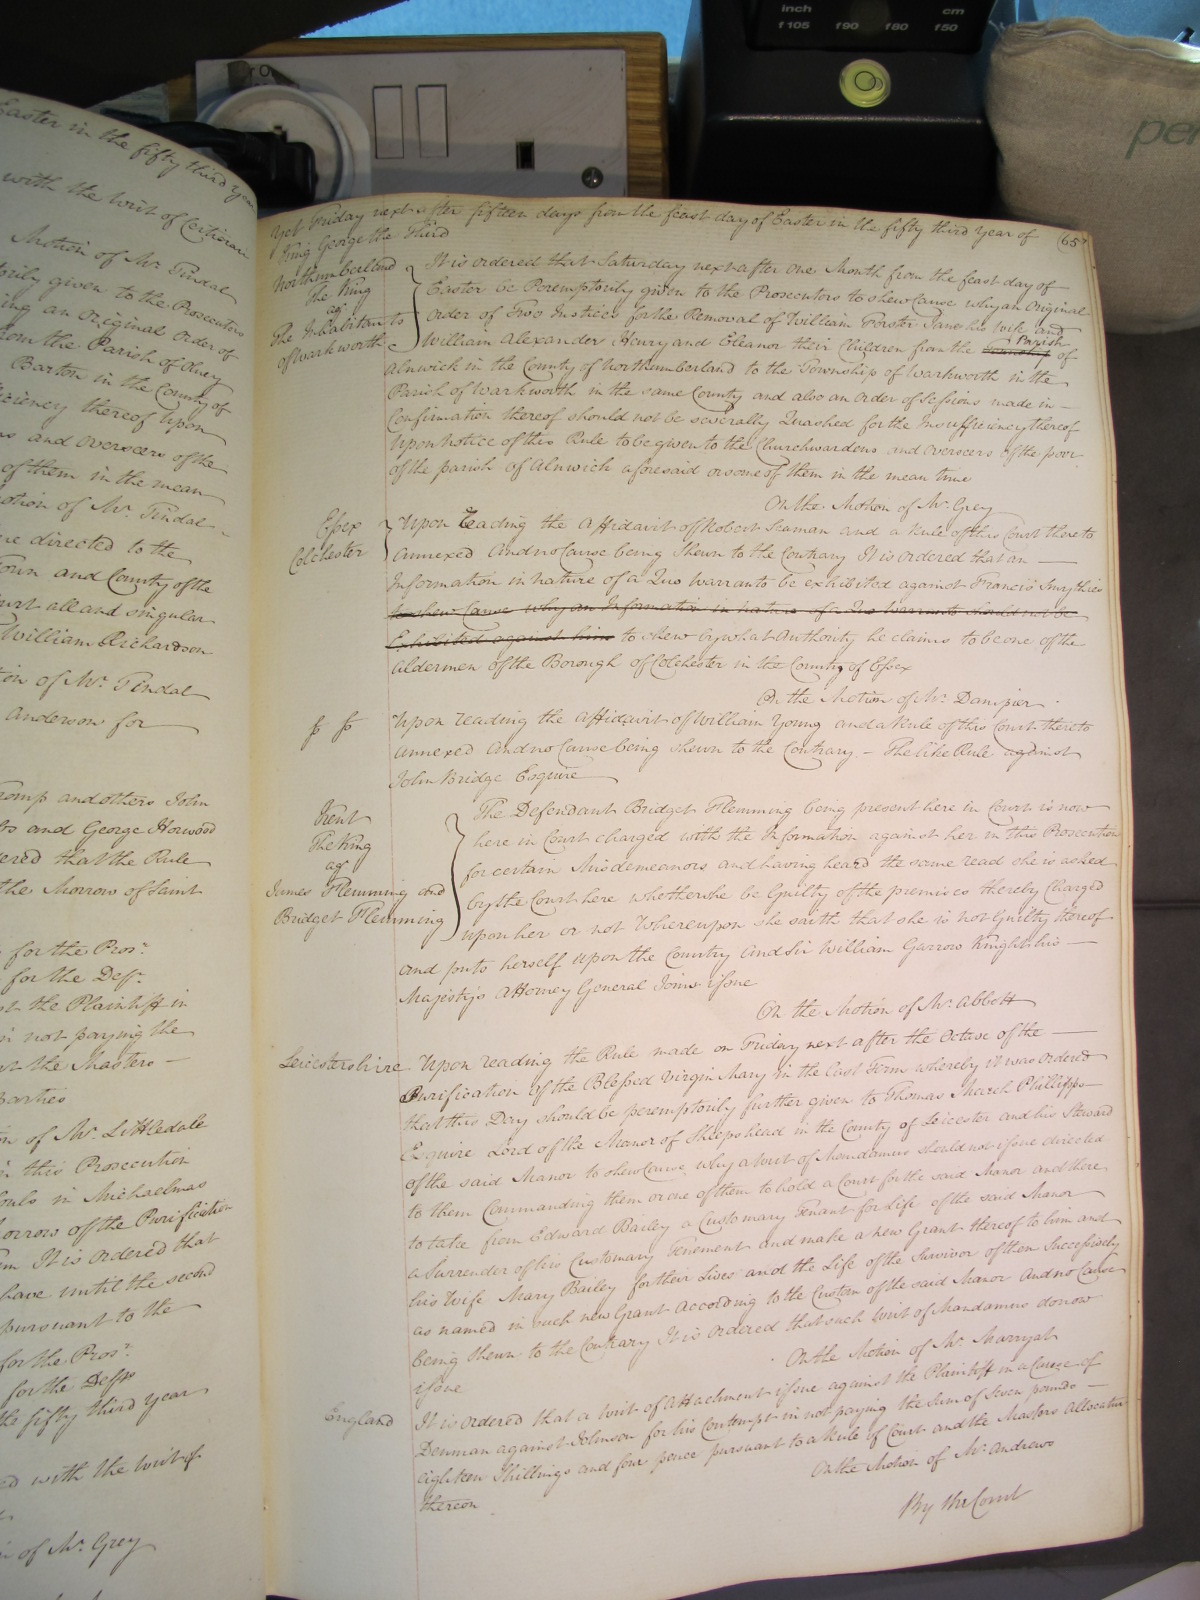 inch cm
f105 f90 f80 f50
per
Easter in the fifty third Year
with the Writ of Certiorari
Motion of Mr. Tindal
given to the Prosecutors
ing an Original Order of
from the Parish of
Barton in the County of
iciency thereof upon
and Overseers of the
of them in the mean
otion of Mr. Tindal
re directed to the
Town and County of the
ourt all and singular
William Richardson
ion of Mr. Tindal
Anderson for
romp and others John
and George Horwood
ered that the Rule
the Morrow of Saint
for the Pros.r
for the Def.t
st the Plaintiff in
in not paying the
nt the Masters
Parties
on of Mr. Littledale
in this Prosecution
Souls in Michaelmas
orrow of the Purification
It is ordered that
have until the second
pursuant to the
for the Pros.r
for the Defts
the fifty third year
ed with the writ of
of Mr. Grey
65
Yet Friday next after fifteen days from the feast day of Easter in the fifty third Year of
King George the Third
Northumberland
The King
agt
The Inhabitants
of Warkworth
It is ordered that Saturday next after one Month from the feast day of
Easter be Peremptorily given to the Prosecutors to shew Cause why an Original
Order of Two Justices for the Removal of William Forster Jane his Wife and
Parish
William Alexander Henry and Eleanor their Children from the Township of
Alnwick in the County of Northumberland to the Township of Warkworth in the
Parish of Warkworth in the same County and also an Order of Sessions made in
Confirmation thereof should not be severally Quashed for the Insufficiency thereof
Upon notice of this Rule to be given to the Churchwardens and Overseers of the poor
of the parish of Alnwick aforesaid or some of them in the mean time
On the Motion of Mr. Grey
Essex
Colchester
Upon reading the Affidavit of Robert Seaman and a Rule of this Court thereto
annexed And no Cause being shewn to the Contrary It is ordered that an
Information in nature of a Quo Warranto be exhibited against Francis Smythies
to shew Cause why an Information in nature of a Quo Warranto should not be
Exhibited against him to shew by what Authority he claims to be one of the
Aldermen of the Borough of Colchester in the County of Essex
On the Motion of Mr. Dampier
Upon reading the Affidavit of William Young and a Rule of this Court thereto
annexed And no Cause being shewn to the Contrary – The like Rule against
John Bridge Esquire
Kent
The King
agt
James Flemming and
Bridget Flemming
The Defendant Bridget Flemming being present here in Court is now
here in Court charged with the Information against her in this Prosecution
for certain Misdemeanors and having heard the same read she is asked
by the Court here whether she be Guilty of the premises thereby Charged
upon her or not Whereupon she saith that she is not Guilty thereof
and puts herself upon the Country And Sir William Garrow Knight his
Majesty's Attorney General Joins issue
On the Motion of Mr. Abbott
Leicestershire
Upon reading the Rule made on Friday next after the Octave of the
Purification of the Blessed Virgin Mary in the last Term whereby it was ordered
that this Day should be peremptorily further given to Thomas March Phillipps
Esquire Lord of the Manor of Sheepshead in the County of Leicester and his Steward
of the said Manor to shew Cause why a Writ of Mandamus should not issue directed
to them Commanding them or one of them to hold a Court for the said Manor and there
to take from Edward Bailey a Customary Tenant for Life of the said Manor
a Surrender of his Customary Tenement and make a new Grant thereof to him and
his Wife Mary Bailey for their Lives and the Life of the Survivor of them Successively
as named in such new Grant According to the Custom of the said Manor And no Cause
being shewn to the Contrary It is ordered that such Writ of Mandamus do now
issue
On the Motion of Mr. Marryat
England
It is ordered that a Writ of Attachment issue against the Plaintiff in a Cause of
Denman against Johnson for his Contempt in not paying the Sum of Seven pounds
eighteen Shillings and four pence pursuant to a Rule of Court and the Masters Allocatur
thereon
On the Motion of Mr. Andrews
By the Court